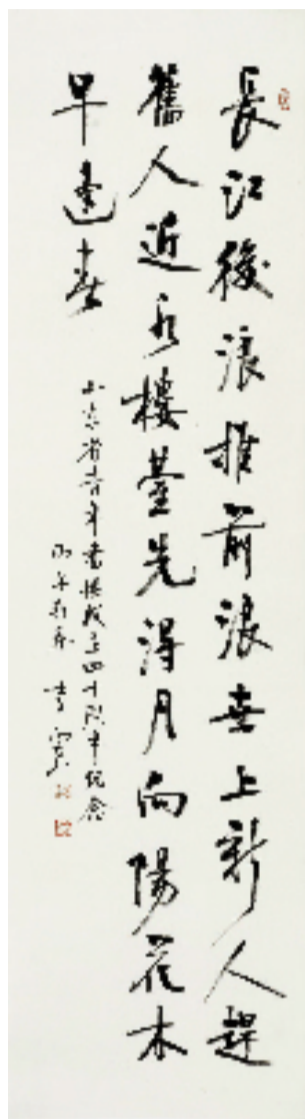 長江後浪推前浪世上新人趕
舊人近水樓臺先得月向陽花木
早逢春
山东省青年書協成立四十周年紀念
丙午